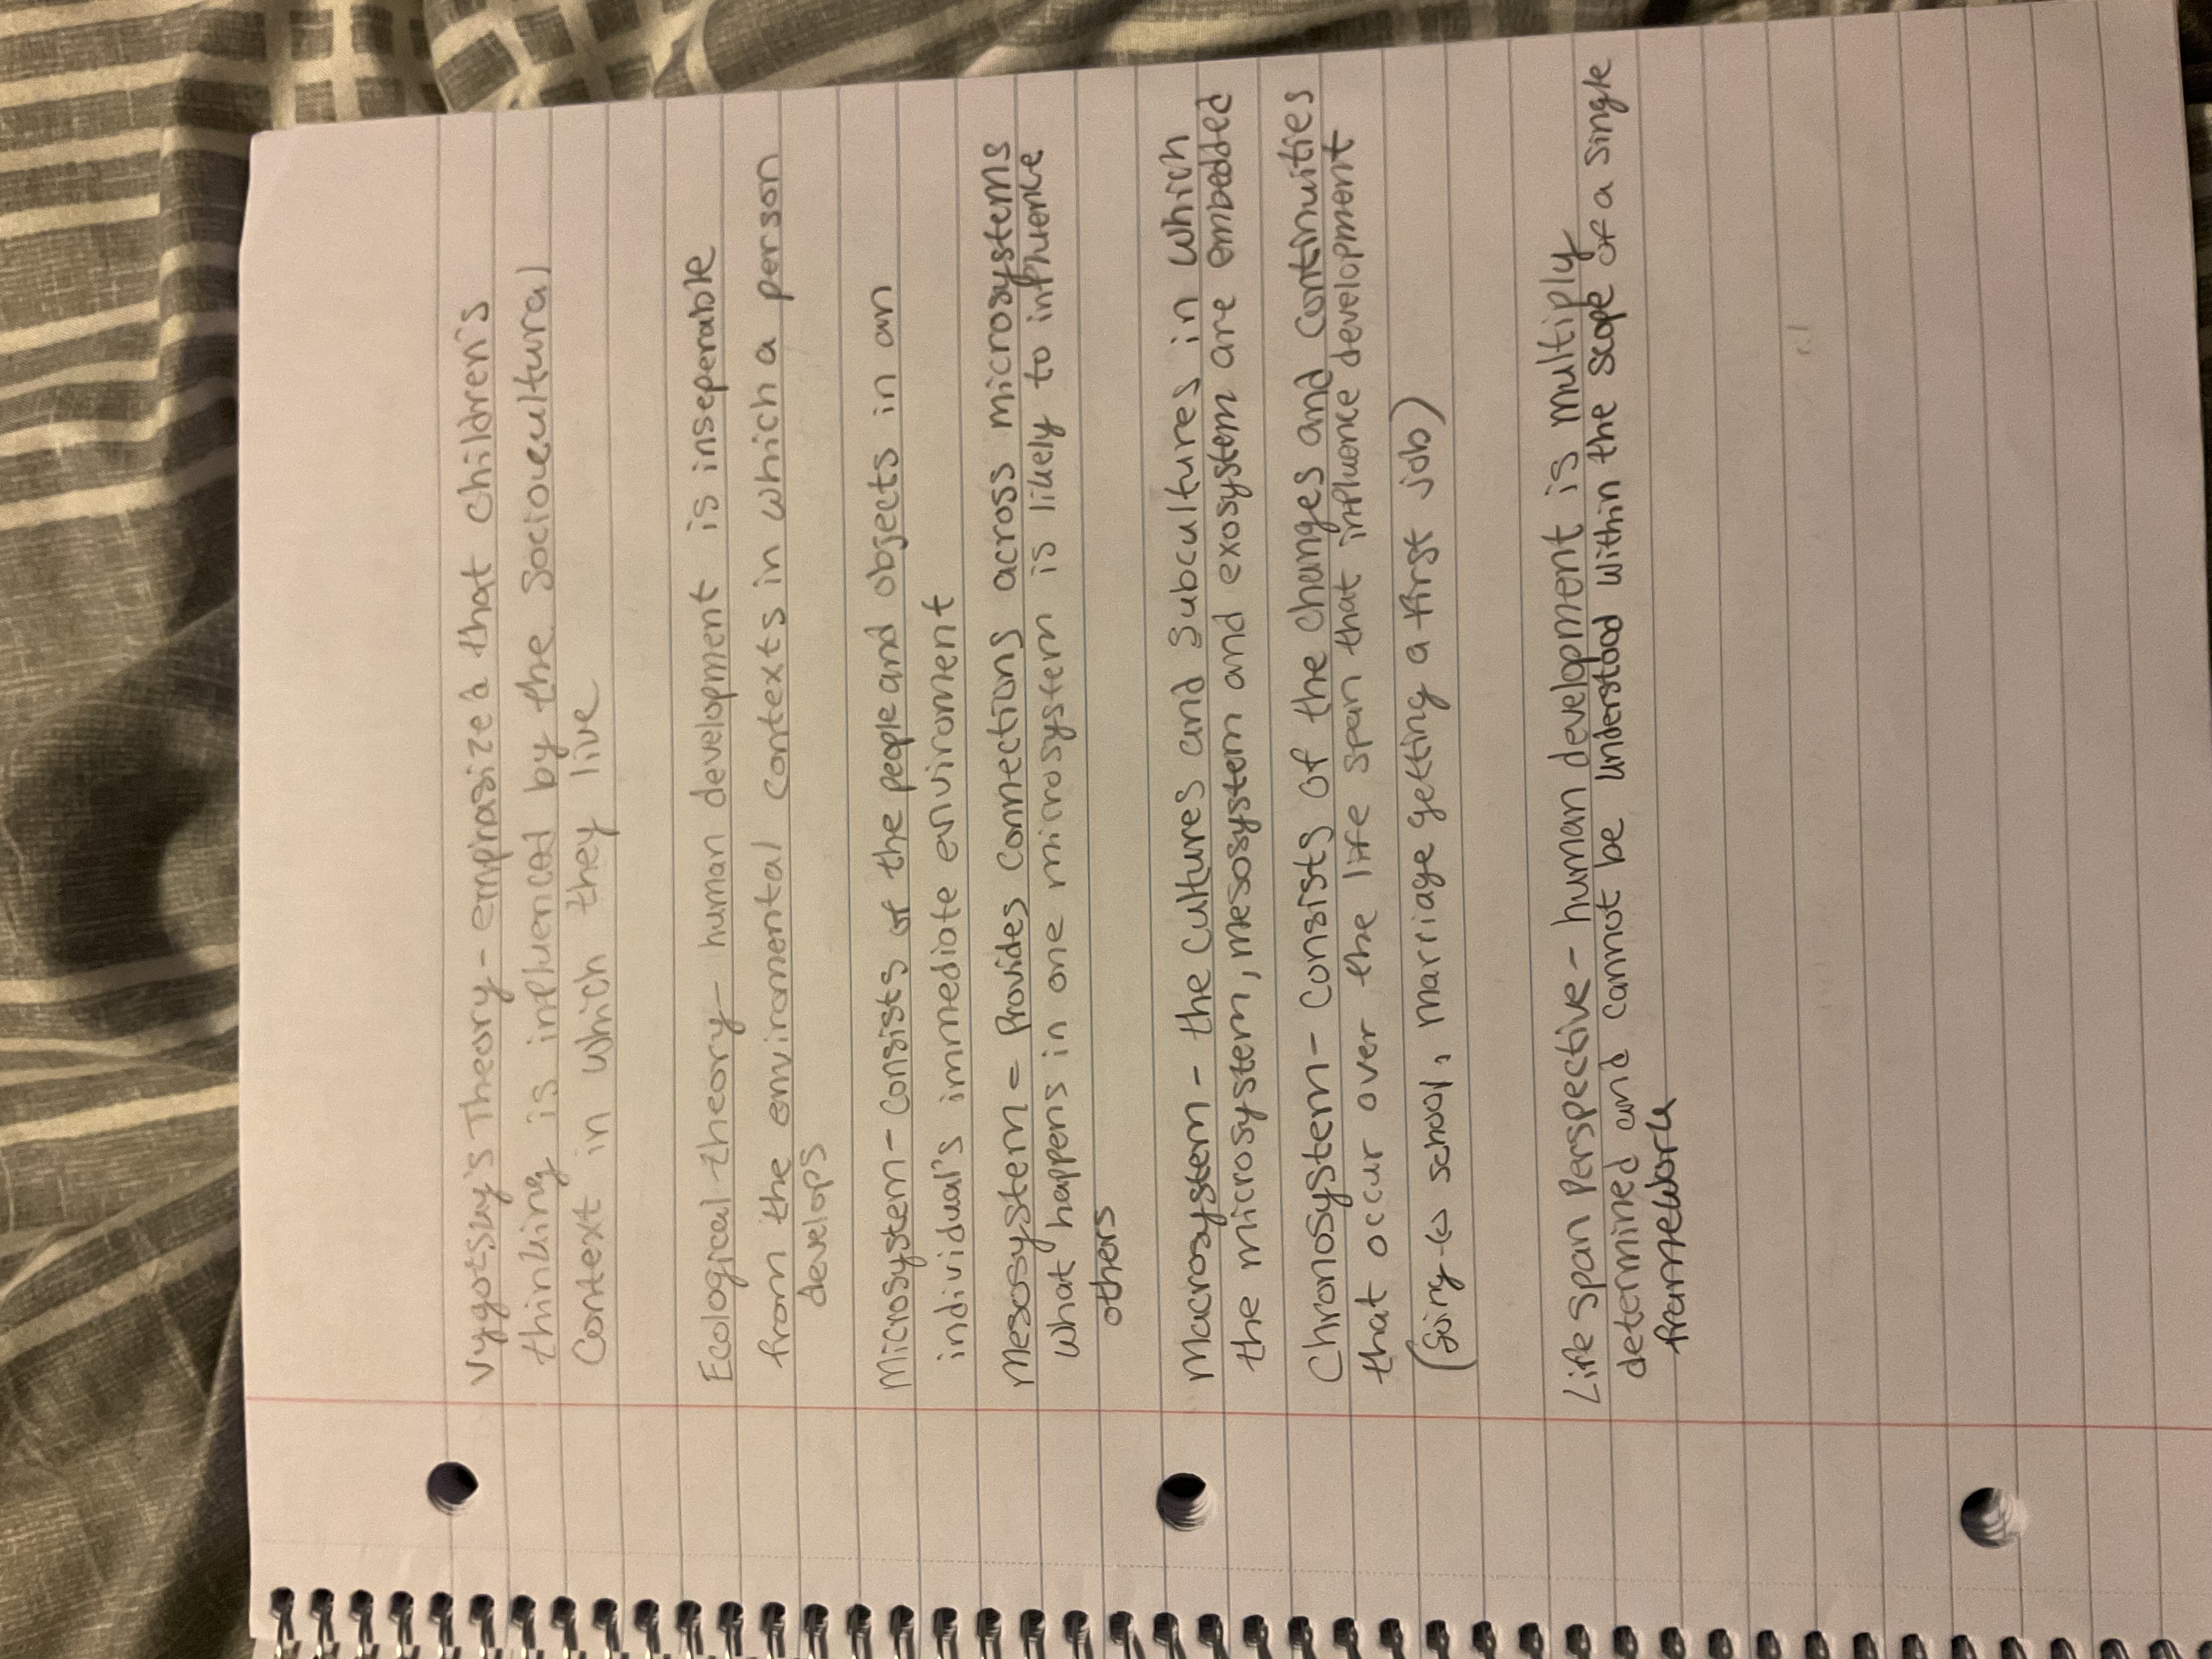 Vygotsky's Theory - emphasized that children's
thinking is influenced by the sociocultural
Context in which they live
Ecological theory - human development is inseperable
from the enviromental contexts in which a person
develops
Microsystem - Consists of the people and objects in an
individual's immediate enviroment
Mesosystem = Provides connections across microsystems
What happens in one microsystem is likely to influence
others
Macrosystem - the cultures and subcultures in which
the microsystem, mesosystem and exosystem are embedded
Chronosystem - Consists of the changes and continuities
that occur over the life span that influence development
(Going to school, marriage getting a first job)
Life span Perspective - human development is multiply
determined and cannot be understood within the scope of a single
framework